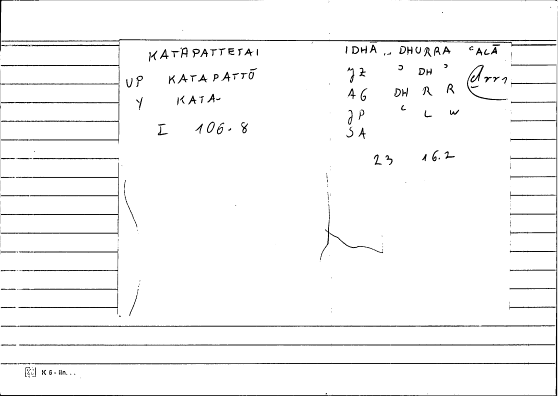 KATAPATTETAI
UP KATAPATTŪ
Y KATA-
I 106.8
IDHĀ .. DHURRA ʿALĀ
JZ ʾ DH ʾ
AG DH R R
JP ʿ L W
SA
drr1
23 16.2
K 6 - lin. . .